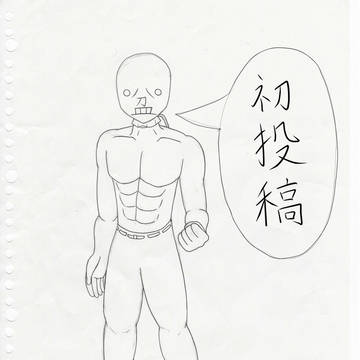 初投稿